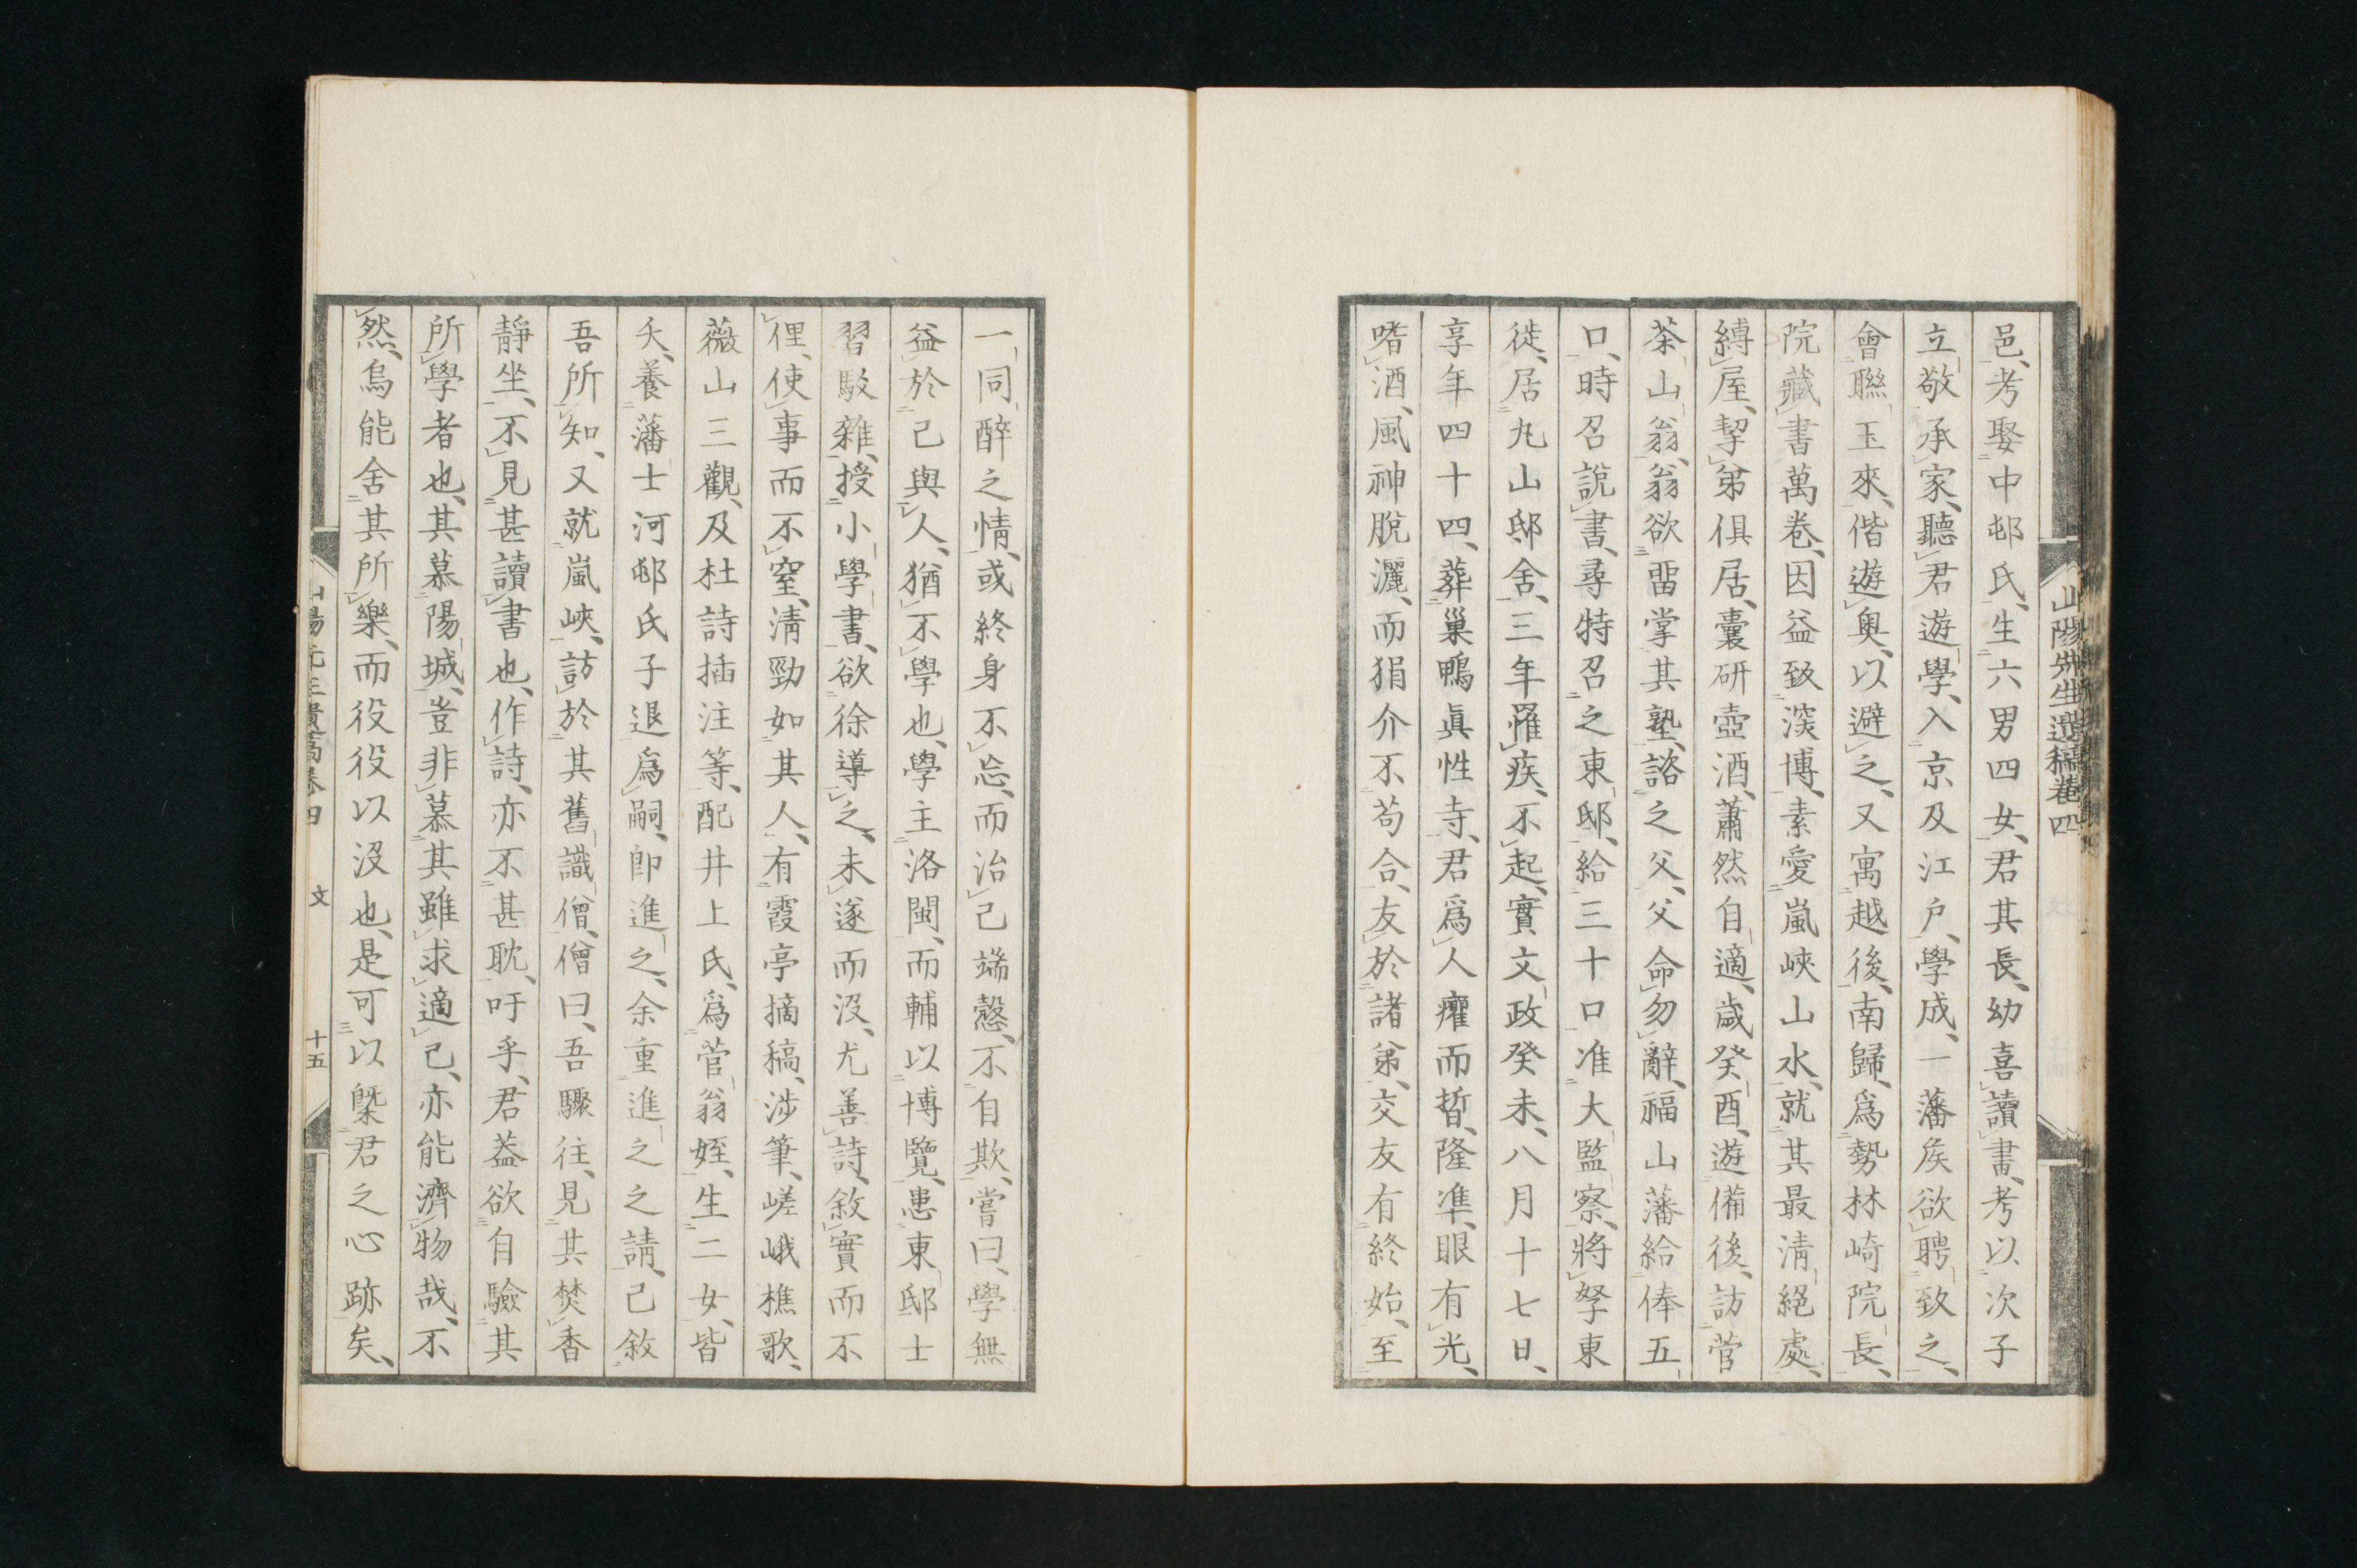 山陽先生遺稿卷四
邑、考娶中邨氏、生六男四女、君其長、幼喜讀書、考以次子
立敬承家、聽君遊學、入京及江戶、學成、一藩矦欲聘致之、
會聯玉來、偕遊奧、以避之、又寓越後、南歸、爲勢林崎院長、
院藏書萬卷、因益致淡博、素愛嵐峽山水、就其最清絕處、
縛屋、挈弟俱居、囊研壺酒、蕭然自適、歲癸酉、遊備後、訪菅
茶山翁、翁欲畱掌其塾、諮之父、父命勿辭、福山藩給俸五
口、時召說書、尋特召之東邸、給三十口准大監察、將孥東
徙、居丸山邸舍、三年罹疾、不起、實文政癸未、八月十七日、
享年四十四、葬巢鴨眞性寺、君爲人癯而晳、隆準、眼有光、
嗜酒、風神脫灑、而狷介不苟合、友於諸弟、交友有終始、至
一同醉之情、或終身不忘、而治己端愨、不自欺、嘗曰、學無
益於己與人、猶不學也、學主洛閩、而輔以博覽、患東邸士
習駁雜、授小學書、欲徐導之、未遂而沒、尤善詩、敘實而不
俚、使事而不窒、清勁如其人、有霞亭摘稿、涉筆、嵯峨樵歌、
薇山三觀、及杜詩插注等、配井上氏、爲菅翁姪、生二女、皆
夭、養藩士河邨氏子退爲嗣、卽進之、余重進之之請、己敘
吾所知、又就嵐峽、訪於其舊識僧、僧曰、吾驟往、見其焚香
靜坐、不見甚讀書也、作詩、亦不甚耽、吁乎、君葢欲自驗其
所學者也、其慕陽城、豈非慕其雖求適己、亦能濟物哉、不
然、烏能舍其所樂、而役役以沒也、是可以槩君之心跡矣、
山陽先生遺稿卷四　文　十五